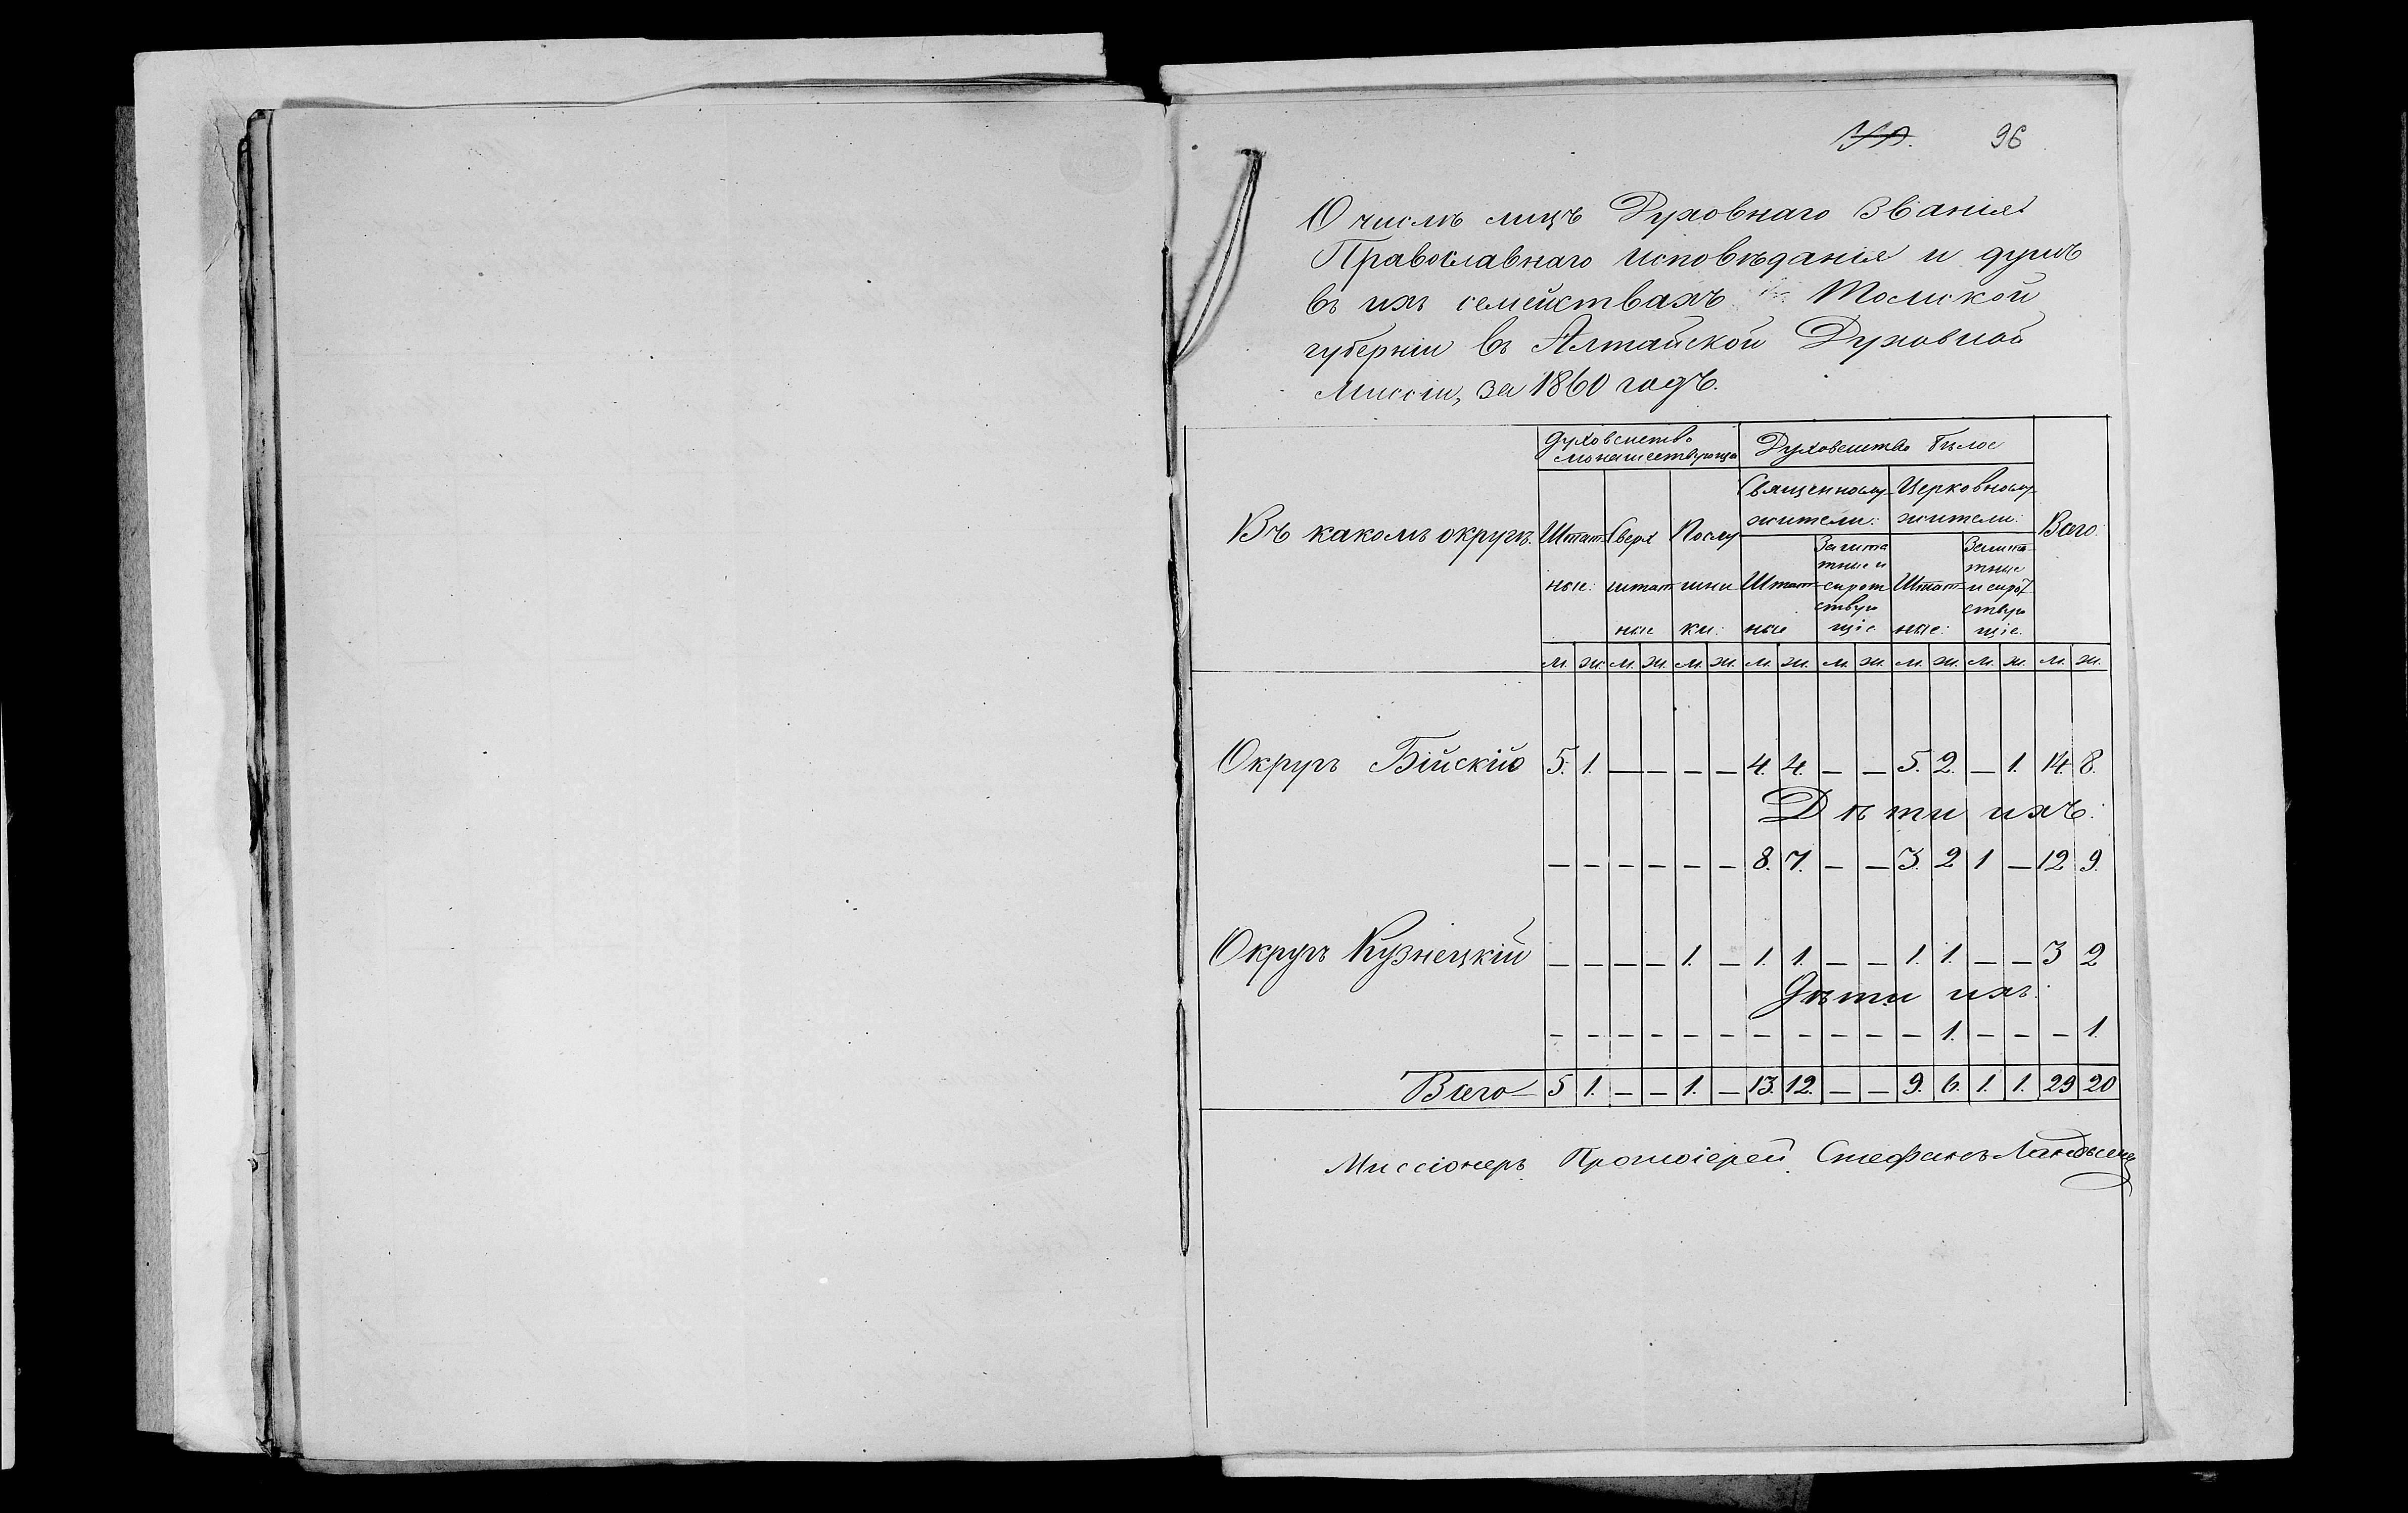 96
О числѣ лицъ Духовнаго Званія
Православнаго исповѣданія и душъ
въ ихъ семействахъ Томской
губерніи въ Алтайской Духовной
Миссіи, за 1860 годъ.
Духовенство монашествующее Духовенство бѣлое
Въ какомъ округѣ. Штатные: Сверхштатные Послушники: Священнослужители: Церковнослужители: Всего:
Штатные Заштатные и сиротствующіе Штатные: Заштатные и сиротствующіе.
м. ж. м. ж. м. ж. м. ж. м. ж. м. ж. м. ж. м. ж.
Округъ Бійскій 5. 1. — — — — 4. 4. — — 5. 2. — 1. 14. 8.
Дѣти ихъ:
— — — — — — 8. 7. — — 3. 2 1 — 12 9.
Округъ Кузнецкій — — — — 1. — 1. 1. — — 1. 1. — — 3 2
Дѣти ихъ:
— — — — — — — — — — — 1. — — — 1.
Всего — 5 1. — — 1. — 13. 12. — — 9. 6. 1. 1. 29 20
Миссіонеръ Протоіерей Стефанъ Ландышевъ